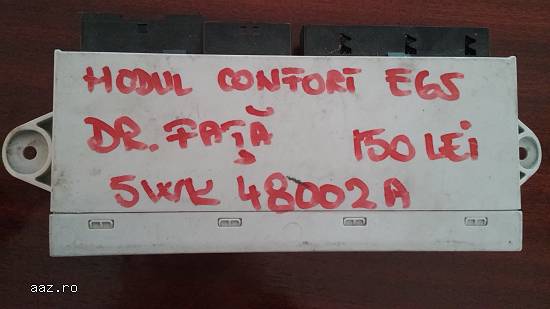 MODUL CONFORT E65
DR. FAȚĂ 150 LEI
5WK 48002A
aaz.ro